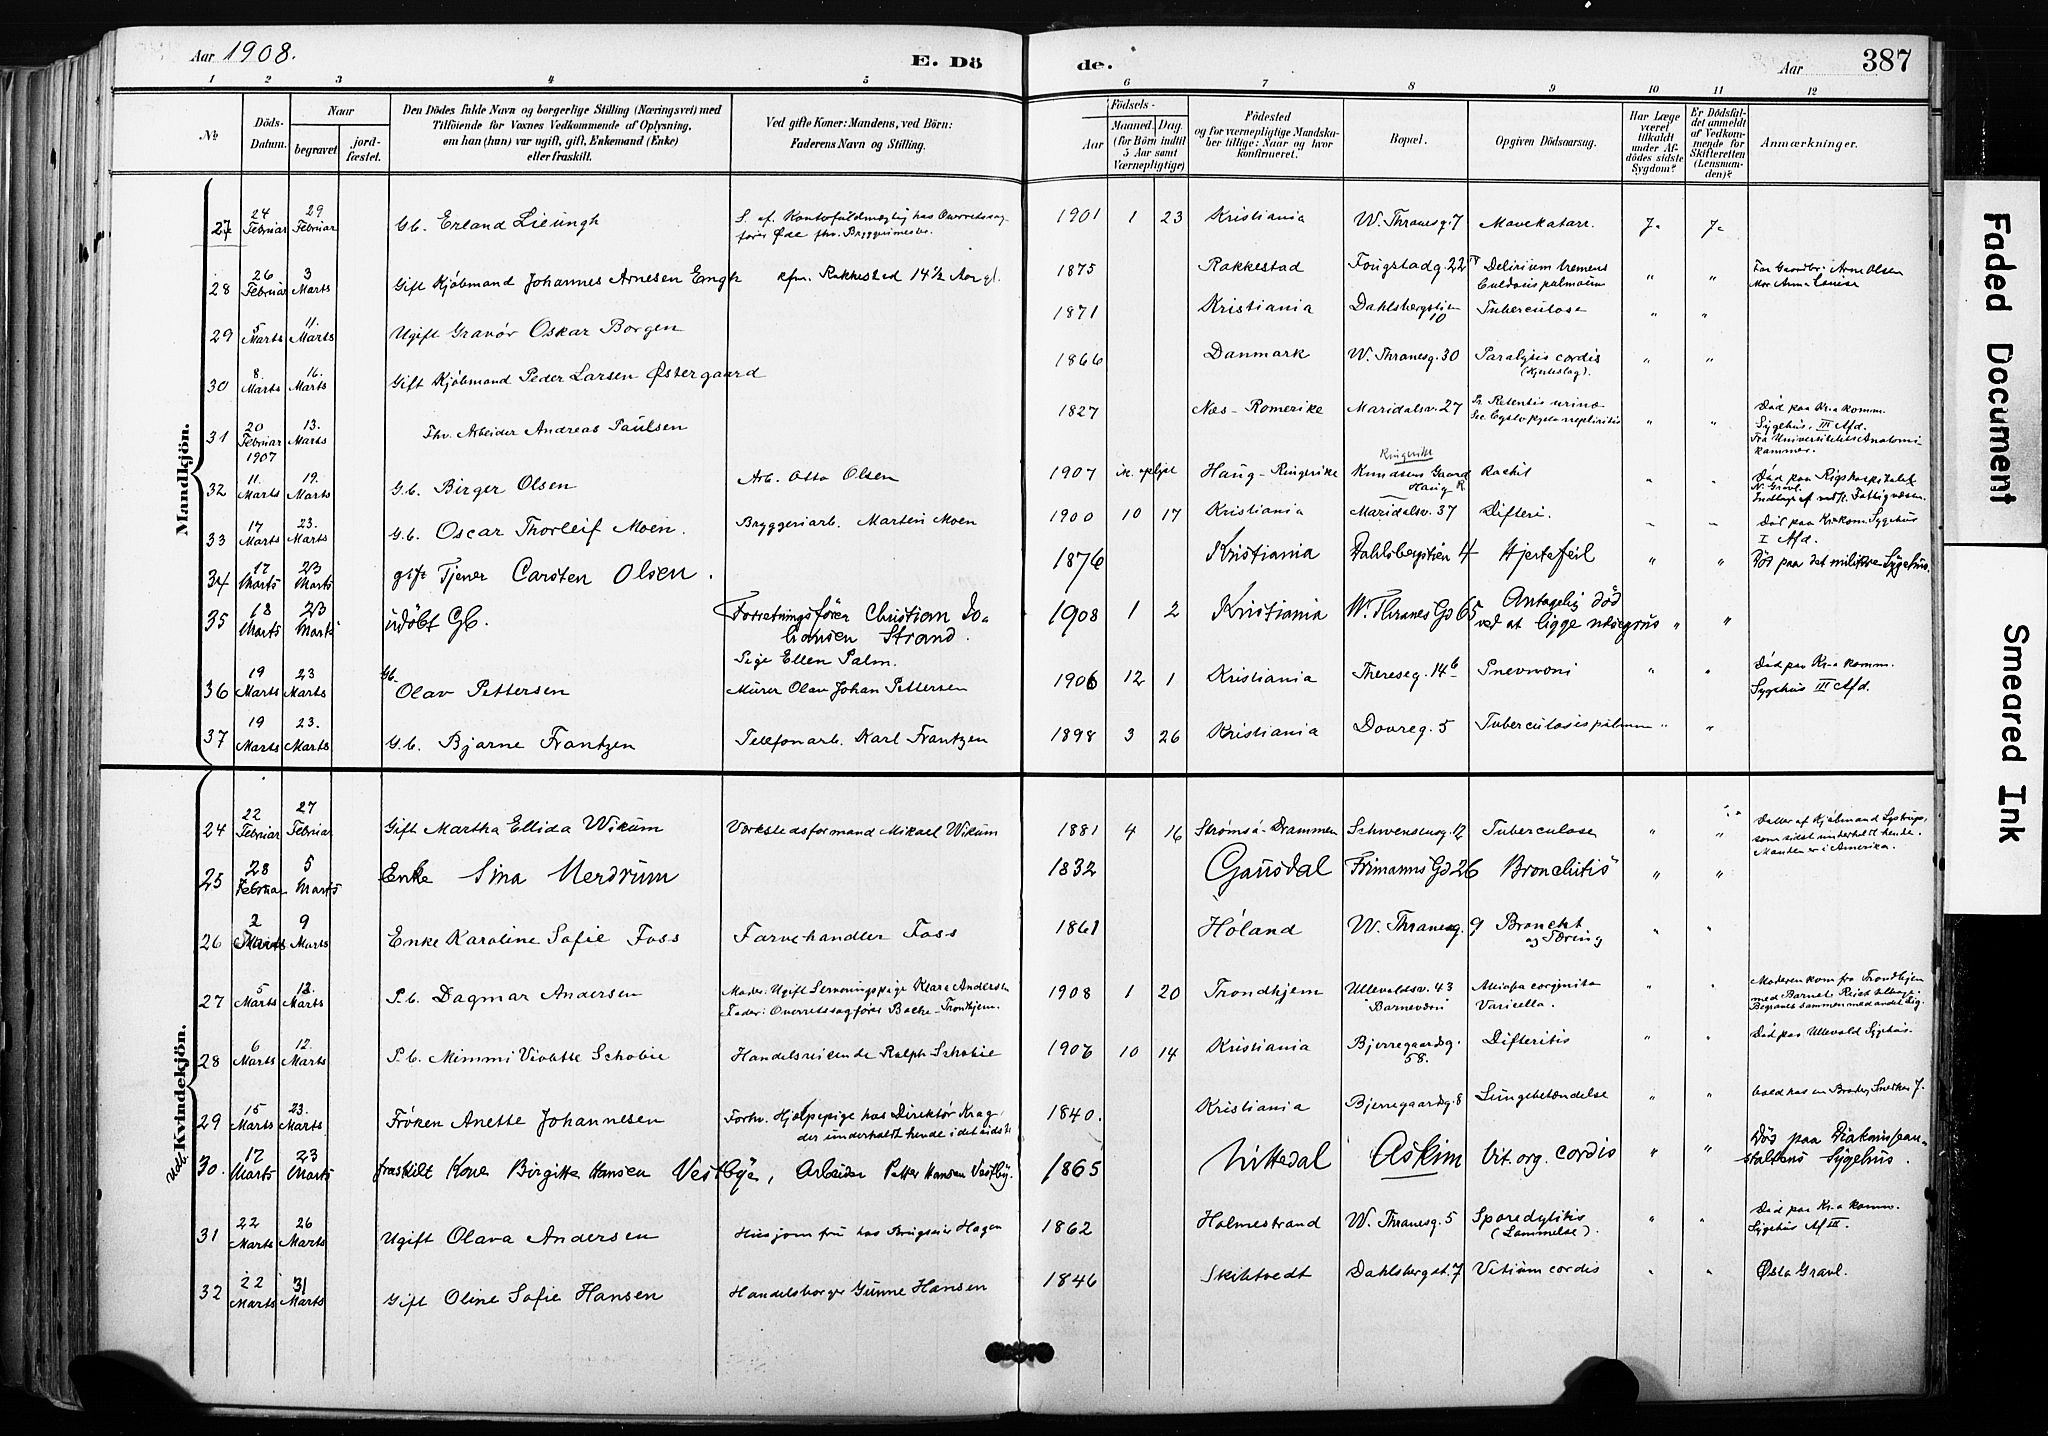 Aar 1908.
E. Dö
de.
Aar
387
1 2 3 4 5 6 7 8 9 10 11 12
№
Döds-
Datum.
Naar
begravet
jord-
fæstet.
Den Dödes fulde Navn og borgerlige Stilling (Næringsvei) med
Tilföiende for Voxnes Vedkommende af Oplysning,
om han (hun) var ugift, gift, Enkemand (Enke)
eller fraskilt.
Ved gifte Koner: Mandens, ved Börn:
Faderens Navn og Stilling.
Födsels-
Aar
Maaned. Dag.
(for Börn indtil
5 Aar samt
Værnepligtige)
Födested
og for værnepligtige Mandska-
ber tillige: Naar og hvor
konfirmeret.
Bopæl.
Opgiven Dödsaarsag.
Har Læge
været
tilkaldt
under Af-
dödes sidste
Sygdom?
Er Dödsfal-
det anmeldt
af Vedkom-
mende for
Skifteretten
(Lensman-
den)?
Anmærkninger.
Mandkjön.
27 24 Februar 29 Februar Gb. Erland Lieungh 1901 1 23 Kristiania W. Thranesg. 7 Mavekatarr. Ja Ja
28 26 Februar 3 Marts Gift Kjöbmand Johannes Arnesen Engh kfm. Rakkestad 14½ Aar gl. 1875 Rakkestad Fougstadg. 22 Delirium tremens " " Arne Olsen
Mor Anna Lovise
29 5 Marts 11. Marts Ugift Gravör Oskar Borgen 1871 Kristiania Dahlsbergstien 10 Tuberculose " "
30 8. Marts 16. Marts Gift Kjöbmand Peder Larsen Østergaard 1866 Danmark W. Thranesg. 30 Paralysis cordis
(Hjerteslag). " "
31 20 Februar 1907 13. Marts Fhv. Arbeider Andreas Paulsen 1827 Næs - Romerike Maridalsv. 27 Retentio urinæ " " Död paa Kr.a komm.
Sygehus, III Afd.
Fra Universitetets Anatomi-
kammer.
32 11. Marts 19. Marts G.b. Birger Olsen Arb. Otto Olsen 1907 ik. oplyst Haug - Ringerike Ringerike
Knudsens Gaard
Haug R. Rachit " " Död paa Rigshospitalet
N. Gravl.
33 17 Marts 23. Marts G.b. Oscar Thorleif Moen. Bryggeriarb. Martin Moen 1900 10 17 Kristiania Maridalsv. 37 Difteri. " " Död paa Kr.a kom. Sygehus
I Afd.
34 17 Marts 23 Marts gift Tjener Carsten Olsen. 1876 Kristiania Dahlsbergstien 4 Hjertefeil " " Död paa det militære Sygehus.
35 18 Marts 23 Marts udöbt Gb. Forretningsförer Christian Jo-
hansen Strand.
Pige Ellen Palm. 1908 1 2 Kristiania W. Thranes Gd 65 Antagelig död
ved at ligge " "
36 19 Marts 23 Marts Gb. Olav Pettersen Murer Olav Johan Pettersen 1906 12 1 Kristiania Thereseg. 14b Pnevmoni " " Död paa Kr.a komm.
Sygehus III Afd.
37 19 Marts 23. Marts G.b. Bjarne Frantzen Telefonarb. Karl Frantzen 1898 3 26 Kristiania Dovreg. 5 Tuberculosis pulmonum " "
Udb. Kvindekjön.
24 22 Februar 27 Februar Gift Martha Ellida Wikum Værkstedsformand Mikael Wikum 1881 4 16 Strømsø - Drammen Schwensensg. 12 Tuberculose " " Datter af Kjöbmand Lystrup,
som sidst underholdt hende.
Manden er i Amerika.
25 28 Februar 5 Marts Enke Sina Merdrum 1832 Gausdal Frimanns Gd 26 Bronchitis " "
26 2 Marts 9 Marts Enke Karoline Sofie Foss Farvehandler Foss 1861 Höland W. Thranesg. 9 Bronchit
og Tæring " "
27 5 Marts 12. Marts P.b. Dagmar Andersen Moder: Ugift Serveringspige Klara Andersen
Fader: Overretssagförer Bache - Tronhjem. 1908 1 20 Trondhjem Ullevaldsv. 43
Barnevern
Varicella. " " Moderen kom fra Trondhjem
med Barnet. Reist tilbage.
Begravet sammen med andet Lig.
28 6 Marts 12. Marts P.b. Mimmi Violette Schobie Handelsreisende Ralph Schobie 1907 10 14 Kristiania Bjerregaardsg.
58. Difteritis " " Död paa Ullevold Sygehus.
29 15 Marts 23. Marts Fröken Anette Johannesen Forhv. Hjelpepige hos Direktör Krag,
der underholdt hende i det sidste 1840. Kristiania Bjerregaardsg. 8 Lungebetændelse " " boed hos en Broder, Snedker J.
30. 17 Marts 23 Marts fraskilt Kone Birgitte Hansen Vestbye, Arbeider Petter Hansen Vestby. 1865 Nittedal Askim Vit. org. cordis " " Död paa Diakonissean-
staltens Sygehus.
31 22 Marts 26 Marts Ugift Olava Andersen Husjomfru hos Brugseier Hagen 1862 Holmestrand W. Thranesg. 5 (Lammelse). " " Död paa Kr.a komm.
Sygehus Af III.
32 22 Marts 31 Marts Gift Oline Sofie Hansen Handelsborger Gunne Hansen 1846 Skibtvedt Dahlsbergst. 7 Vitium cordis " " Østa Gravl.
Faded Document
Smeared Ink